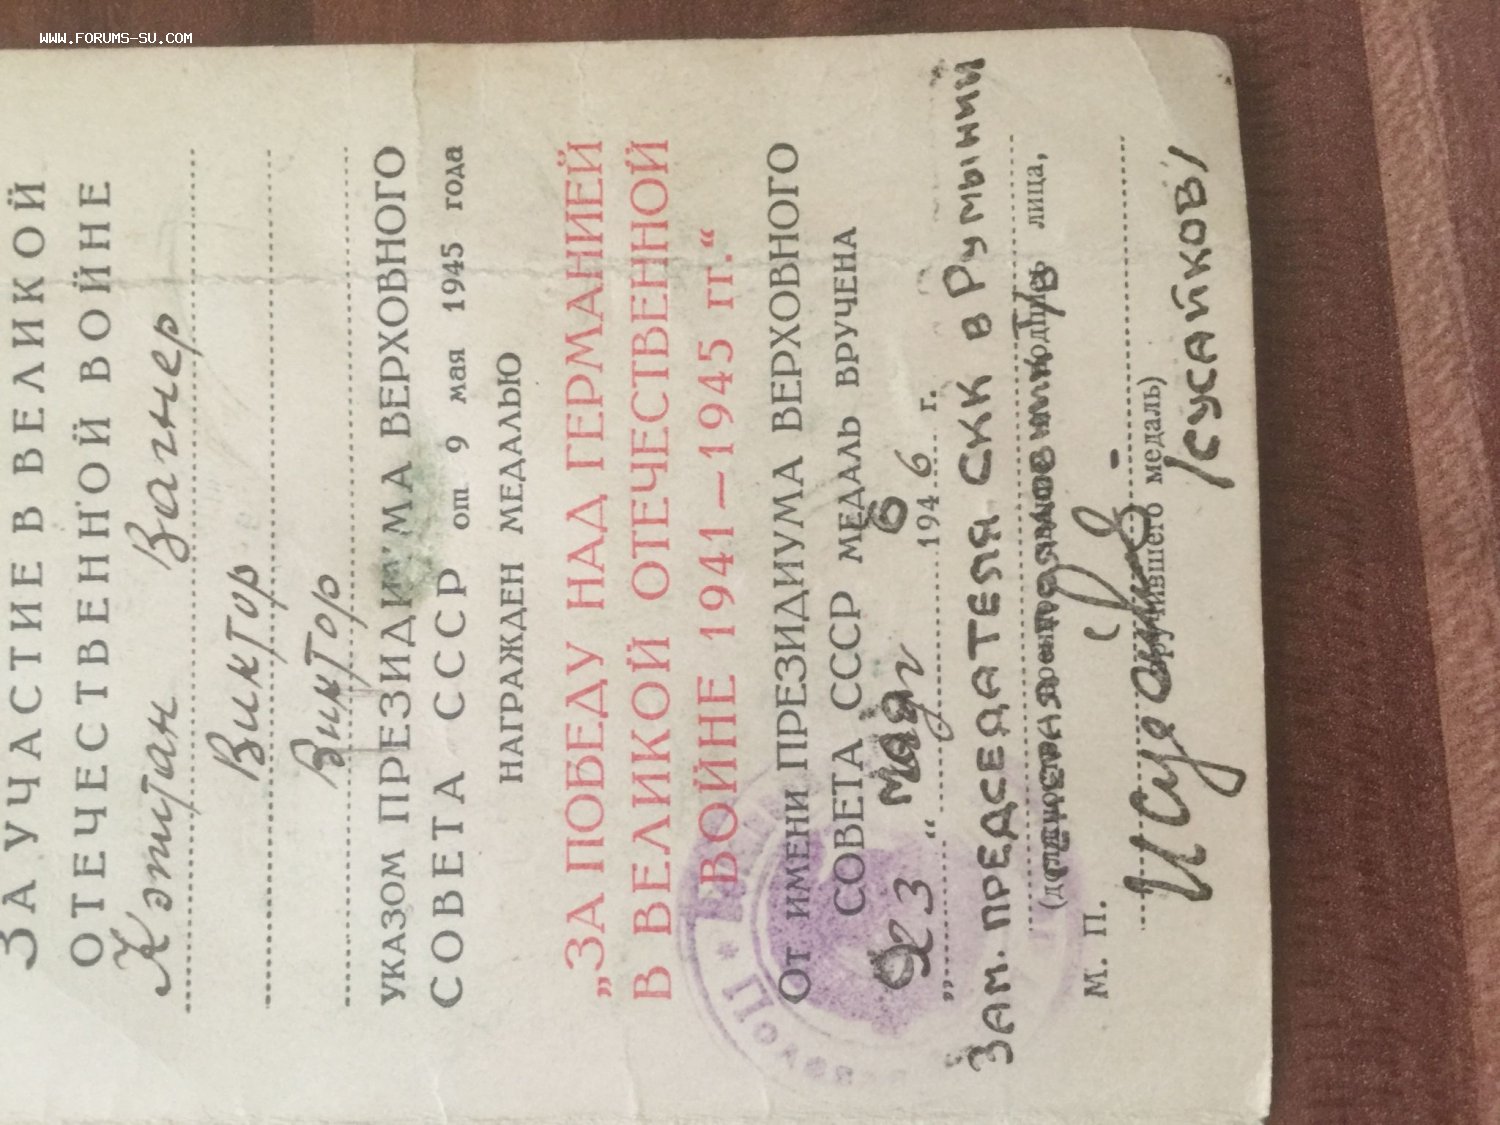 WWW.FORUMS-SU.COM
ЗА УЧАСТИЕ В ВЕЛИКОЙ
ОТЕЧЕСТВЕННОЙ ВОЙНЕ
Кэптан Вагнер
Виктор
Виктор
УКАЗОМ ПРЕЗИДИУМА ВЕРХОВНОГО
СОВЕТА СССР от 9 мая 1945 года
НАГРАЖДЕН МЕДАЛЬЮ
„ЗА ПОБЕДУ НАД ГЕРМАНИЕЙ
В ВЕЛИКОЙ ОТЕЧЕСТВЕННОЙ
ВОЙНЕ 1941—1945 гг.“
От ИМЕНИ ПРЕЗИДИУМА ВЕРХОВНОГО
СОВЕТА СССР МЕДАЛЬ ВРУЧЕНА
„23“ мая 1946 г.
ЗАМ. ПРЕДСЕДАТЕЛЯ СКК В РУМЫНИИ
лица,
М. П.
вручившего медаль)
/СУСАЙКОВ/